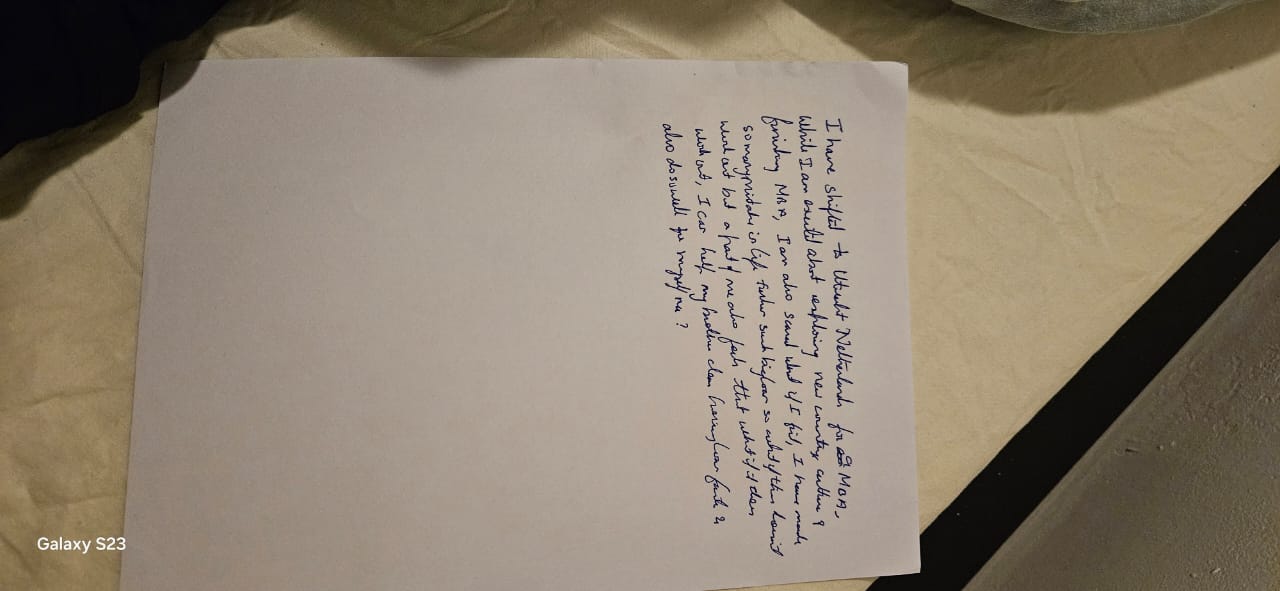 I have shifted to Utrecht Netherlands for MBA.
While I am excited about exploring new country culture &
finishing MBA, I am also scared what if I fail, I have made
so many mistakes in life taken such big loan so what if this doesn't
work out but a part of me also feels that what if it does
work out, I can help my brother clear home loan &
also do so well for myself ?
Galaxy S23